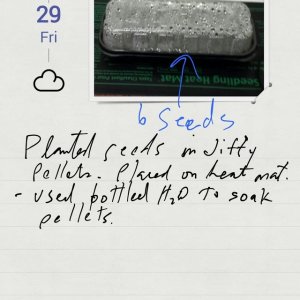 29
Fri
Seedling Heat Mat
6 seeds
Planted seeds in Jiffy
pellets. Placed on heat mat.
- used bottled H₂O to soak
pellets.